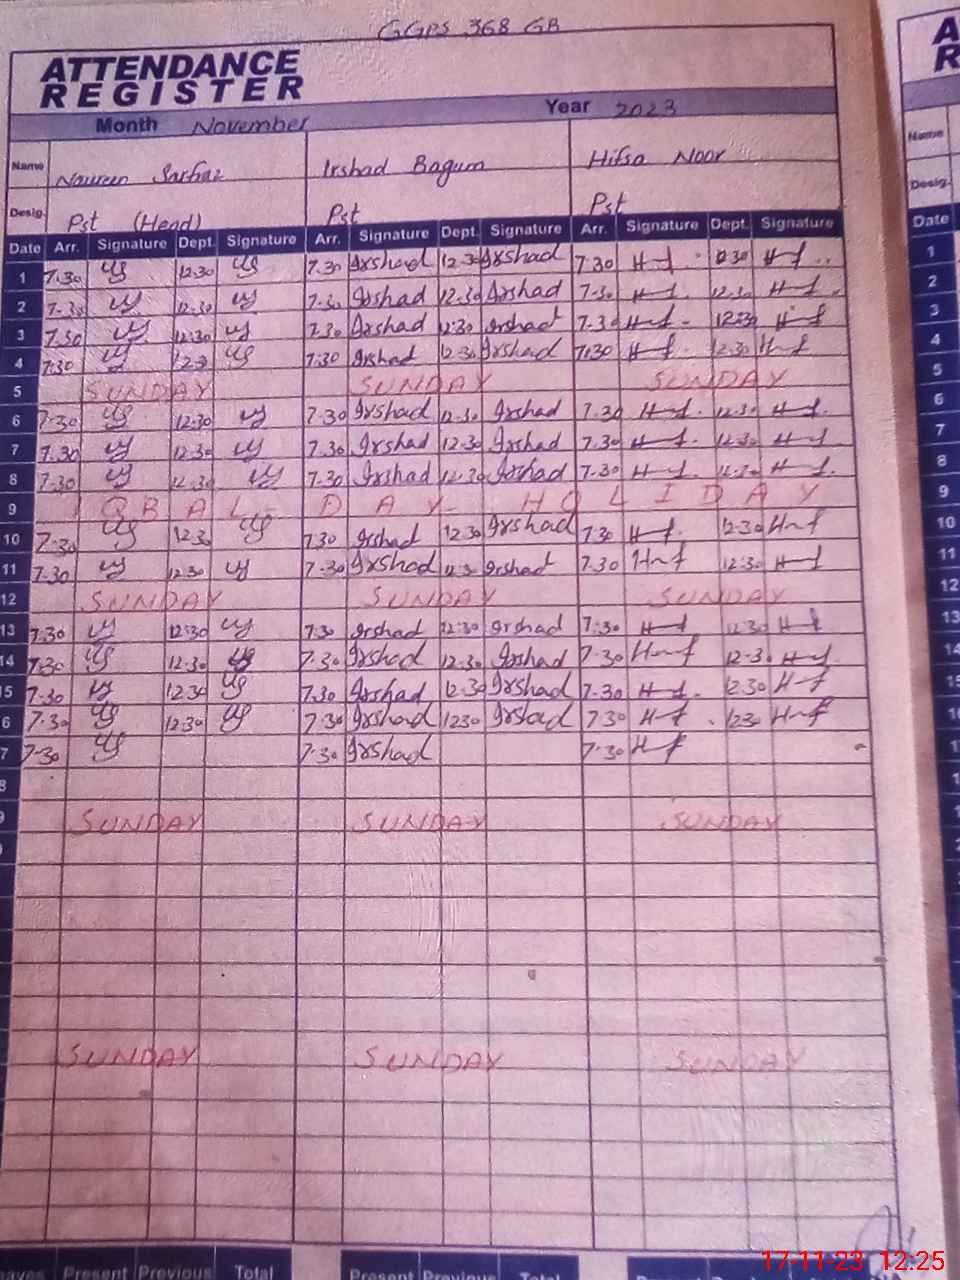 GGPS 368 GB
ATTENDANCE
REGISTER
Month November Year 2023
Name Naureen Sarfraz Irshad Bagum Hifsa Noor
Desig. Pst (Head) Pst Pst
Date Arr. Signature Dept. Signature Arr. Signature Dept. Signature Arr. Signature Dept. Signature
1 7.30 12.30 7.30 Irshad 12.30 Irshad 7.30 12.30
2 7.30 12.30 7.30 Irshad 12.30 Irshad 7.30 12.30
3 7.30 12.30 7.30 Irshad 12.30 Irshad 7.30 12.30
4 7.30 12.30 7.30 Irshad 12.30 Irshad 7.30 12.30
5 SUNDAY SUNDAY SUNDAY
6 7.30 12.30 7.30 Irshad 12.30 Irshad 7.30 12.30
7 7.30 12.30 7.30 Irshad 12.30 Irshad 7.30 12.30
8 7.30 12.30 7.30 Irshad 12.30 Irshad 7.30 12.30
9 QBAL DAY HOLIDAY
10 7.30 12.30 7.30 Irshad 12.30 Irshad 7.30 12.30
11 7.30 12.30 7.30 Irshad 12.30 Irshad 7.30 12.30
12 SUNDAY SUNDAY SUNDAY
13 7.30 12.30 7.30 Irshad 12.30 Irshad 7.30 12.30
14 7.30 12.30 7.30 Irshad 12.30 Irshad 7.30 12.30
15 7.30 12.30 7.30 Irshad 12.30 Irshad 7.30 12.30
6 7.30 12.30 7.30 Irshad 12.30 Irshad 7.30 12.30
7 7.30 7.30 Irshad 7.30
8
9 SUNDAY SUNDAY SUNDAY
SUNDAY SUNDAY SUNDAY
Present Previous Total Present Previous Total
A
R
Name
Desig.
Date
1
2
3
4
5
6
7
8
9
10
11
12
13
14
17-11-23 12:25